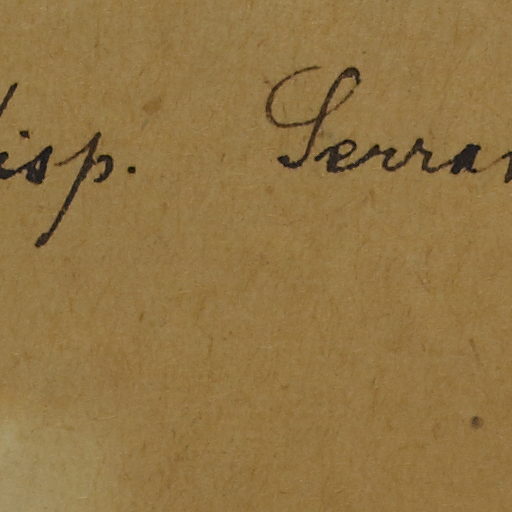 isp. Serran